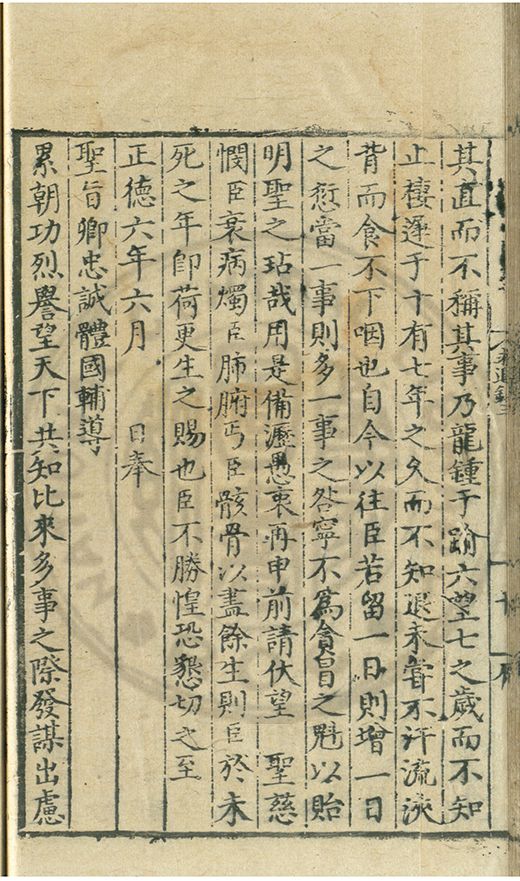 其直而不稱其事乃龍鍾于踰六望七之歲而不知
止棲遲于十有七年之久而不知退未嘗不汗流浹
背而食不下咽也自今以往臣若留一日則增一日
之愆當一事則多一事之咎寧不為貪冒之魁以貽
明聖之玷哉用是備瀝愚衷再申前請伏望 聖慈
憫臣衰病燭臣肺腑丐臣骸骨以盡餘生則臣於未
死之年卽荷更生之賜也臣不勝惶恐懇切之至
正德六年六月 日奉
聖旨卿忠誠體國輔導
累朝功烈譽望天下共知比來多事之際發謀出慮